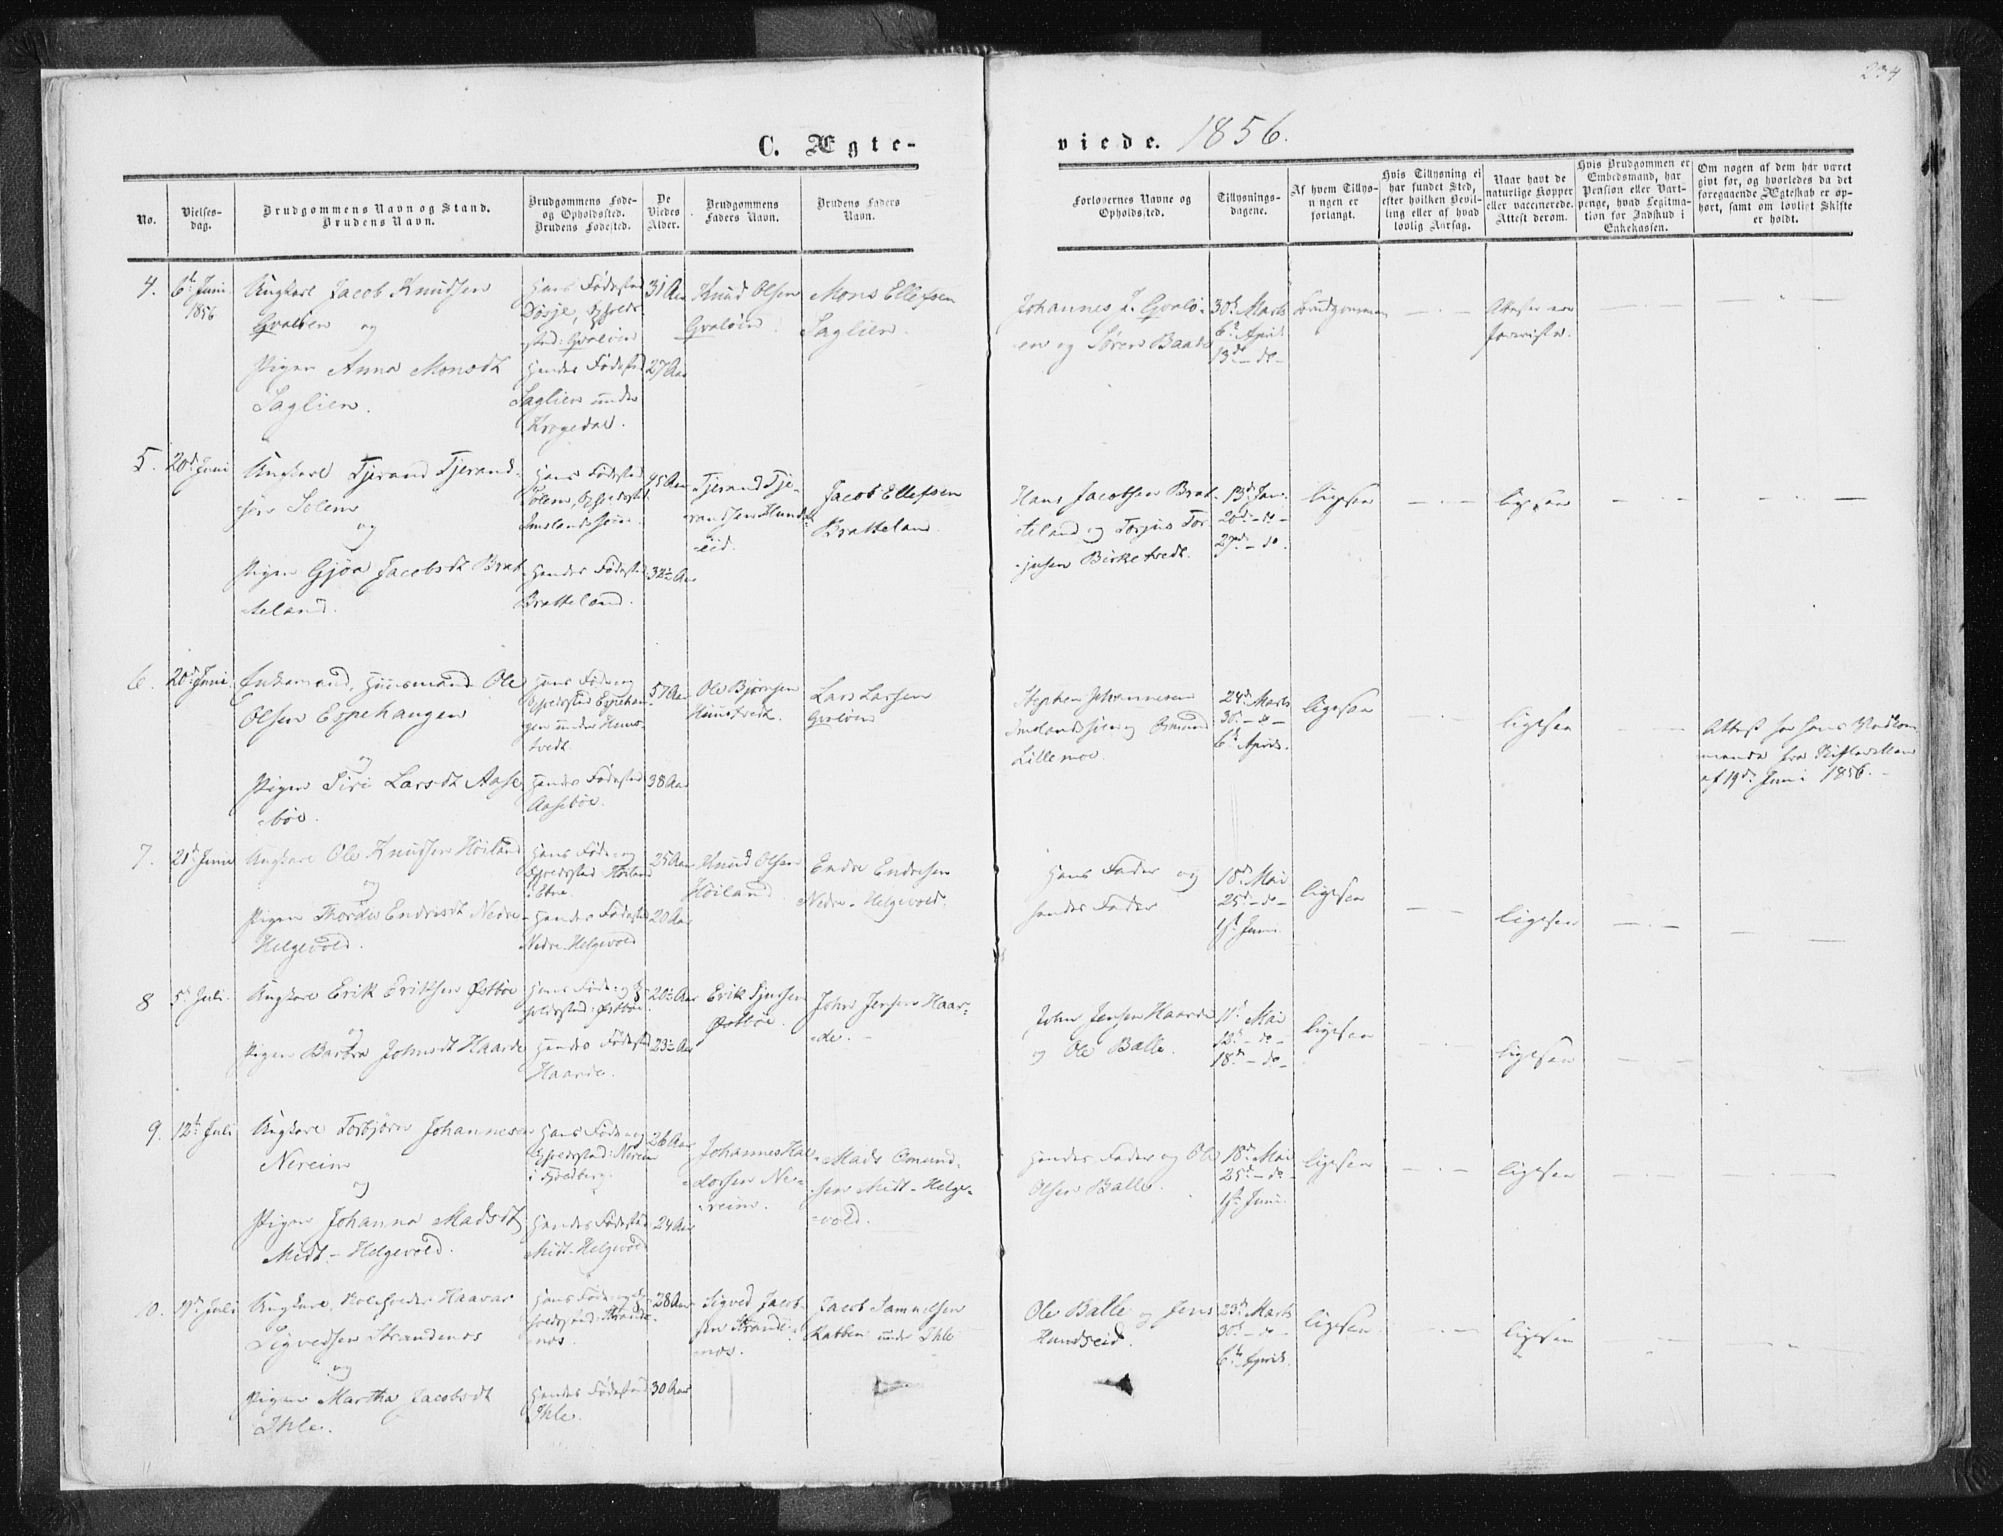 234
C. Ægte-
viede. 1856.
No.
Vielses-
dag.
Brudgommens Navn og Stand.
Brudens Navn.
Brudgommens Føde-
og Opholdssted.
Brudens Fødested.
De
Viedes
Alder.
Brudgommens
Faders Navn.
Brudens Faders
Navn.
Forlovernes Navne og
Opholdssted.
Tillysnings-
dagene.
Af hvem Tillys-
ningen er
forlangt.
Hvis Tillysning ei
har fundet Sted,
efter hvilken Bevil-
ling eller af hvad
lovlig Aarsag.
Naar havt de
naturlige Kopper
eller vaccinerede.
Attest derom.
Hvis Brudgommen er
Embedsmand, har
Pension eller Vart-
penge, hvad Legitima-
tion for Indskud i
Enkekassen.
Om nogen af dem har været
givt for, og hvorledes da det
foregaaende Ægteskab er op-
hørt, samt om lovligt Skifte
er holdt.
4.
6te Juni
1856
Ungkarl Jacob Knudsen
og
Pigen Anna Monsdt
Saglien.
Hans Fødested
Hendes Fødested
Saglien under
Krogedal.
31 Aar
27 Aar
Knud Olsen
Mons Ellefsen
Saglien.
en og Søren Baade
30te Marts
6te April
13de - do -
Brudgommen
Attester ere
foreviste.
5.
20de Juni
Ungkarl Tjerand Tjerand-
sen Solem
og
Pigen Gjøa Jacobsdt Brat-
teland.
Hans Fødested
Hendes Fødested
Bratteland.
45 Aar
32 Aar
Tjerand Tje-
randsen Hunds-
eid.
Jacob Ellefsen
Bratteland.
Hans Jacobsen Brat-
teland og Torjus Tor-
jusen Birketvedt.
13de Jan.
20de - do -
27de - do
ligesaa
ligesaa
6.
20de Juni
Enkemand, Huusmand Ole
Olsen Espehaugen
og
Pigen Siri Larsdt Aase-
bøe.
Hans Føde og
Opholdssted Espehau-
gen under
Hendes Fødested
Aasebøe.
57 Aar
38 Aar
Ole Bjørnsen
Lars Larsen
Stephen Johannesen
Imslandssjøen og Osmund
Lillemoe.
24de Marts
30te - do -
6te April.
ligesaa
ligesaa
af 19de Juni 1856.
7.
21de Juni
Ungkarl Ole Knudsen Høiland
og
Pigen Thordis Endresdt Nedre-
Helgevold.
Hans Føde og
Opholdssted Høiland
i Etne.
Hendes Fødested
Nedre-Helgevold
25 Aar
20 Aar
Knud Olsen
Høiland.
Endre Endresen
Nedre-Helgevold.
Hans Fader og
hendes Fader
18de Mai
25de - do -
1ste Juni
ligesaa
ligesaa
8
5te Juli.
Ungkarl Erik Eriksen Østbøe
og
Pigen Barbra Johnsdt Haarde
Hans Føde og Op-
holdssted: Østbøe
Hendes Fødested
Haarde.
20 Aar
23 Aar
Østbøe.
John Jensen Haar-
de.
John Jensen Haarde
og Ole Balle.
11te Mai
12te - do -
18de - do -
ligesaa
ligesaa
9.
12te Juli
Ungkarl Torbjørn Johannesen
Nereim
og
Pigen Johanna Madsdt
Midt-Helgevold.
Hans Føde og
Opholdssted: Nereim
Hendes Fødested
Midt-Helgevold
26 Aar
24 Aar
Johannes Hal-
dorsen Ne-
reim.
Mads Omund-
sen Midt-Helge-
vold.
Hendes Fader og Ole
Olsen Balle.
18de Mai
25de - do -
1ste Juni.
ligesaa
ligesaa
10.
Ungkarl, Haavar
Sigvedsen Strandenos
og
Pigen Martha Jacobsdt
Ihle.
Hans Føde og Op-
holdssted: Strande-
nos.
Hendes Fødested
Ihle.
28 Aar
30 Aar
Sigved Jacob-
sen Strande-
nos.
Jacob Samuelsen
Bakken under Ihle
Ole Balle og Jens
Hundseid.
23de Marts
30te - do -
6te April.
ligesaa
ligesaa